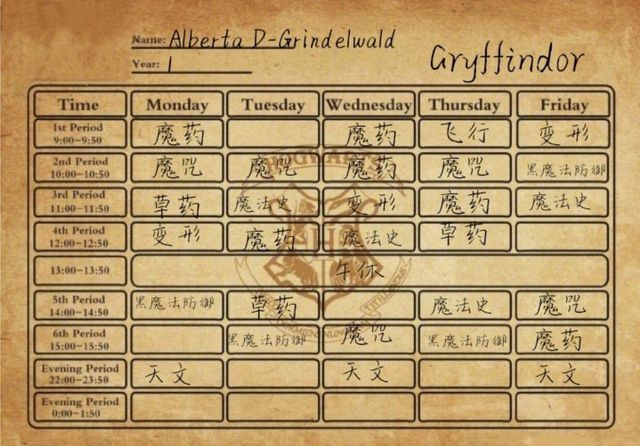 Name: Alberta D-Grindelwald
Year: 1
Gryffindor
Time Monday Tuesday Wednesday Thursday Friday
1st Period 魔药 魔药 飞行 变形
9:00-9:50
2nd Period 魔咒 魔咒 魔药 魔咒 黑魔法防御
10:00-10:50
3rd Period 草药 魔法史 变形 魔药 魔法史
11:00-11:50
4th Period 变形 魔药 魔法史 草药
12:00-12:50
13:00-13:50 午休
5th Period 黑魔法防御 草药 魔法史 魔咒
14:00-14:50
6th Period 黑魔法防御 魔咒 黑魔法防御 魔药
15:00-15:50
Evening Period 天文 天文 天文
22:00-23:50
Evening Period
0:00-1:50
HOGWARTS